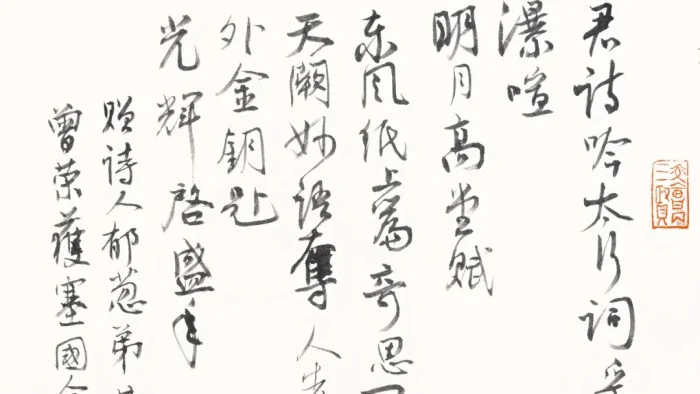 君诗吟太行词
瀑喧
明月高堂赋
东风纸上篇奇思
天阙妙语夺人
外金钥匙
光辉启盛年
赠诗人郁葱弟
曾荣获塞國金